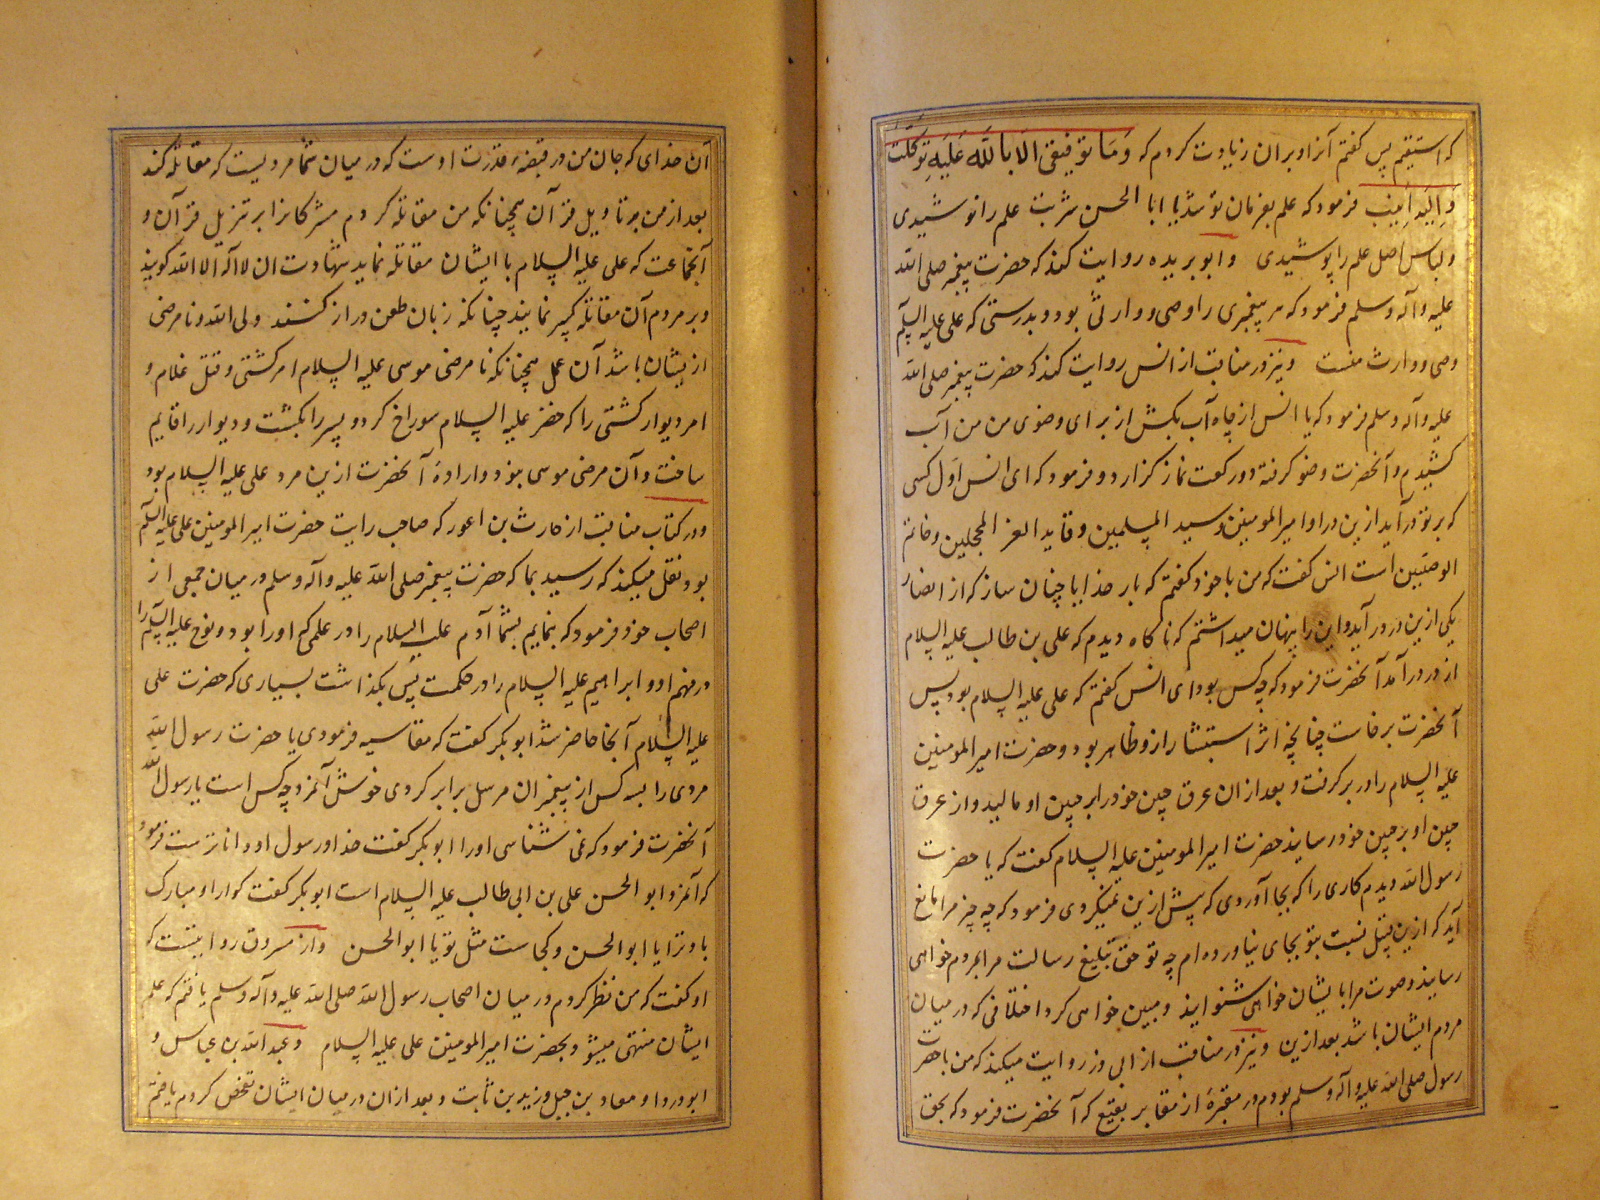 که استقیم پس گفتم آنرا و بران زیادت کردم که وَمَا توفیقی اِلّا بالله عَلَیهِ تَوَکَّلتُ
وَ اِلَیهِ اُنیب فرمود که علم بفرمان تو شد یا ابا الحسن شربت علم را نوشیدی
و لباس اصل علم را پوشیدی و ابو بریده روایت کند که حضرت پیغمبر صلی الله
علیه وآله وسلم فرمود که هر پیغمبری را وصی و وارثی بود و بدرستی که علی علیه السلام
وصی و وارث منست و نیز در مناقب از انس روایت کند که حضرت پیغمبر صلی الله
علیه وآله وسلم فرمود که یا انس از چاه آب بکش از برای وضوی من من آب
کشیدم و آنحضرت وضو کرفته دو رکعت نماز کزارد و فرمود که ای انس اول کسی
که بر تو در آید ازین در او امیر المومنین و سید المسلمین و قاید الغر المحجلین و خاتم
الوصیین است انس کفت که من با خود کفتم که بار خدایا چنان ساز که از انصار
یکی ازین در در آید و این را پنهان میداشتم که ناکاه دیدم که علی بن طالب علیه السلام
از در در آمد آنحضرت فرمود که چه کس بود ای انس کفتم که علی علیه السلام بود پس
آنحضرت برخاست چنانچه اثر استبشار ازو ظاهر بود و حضرت امیر المومنین
علیه السلام را در بر کرفت و بعد از ان عرق جبین خود را بر جبین او مالید و از عرق
جبین او بر جبین خود رسانید حضرت امیر المومنین علیه السلام کفت که یا حضرت
رسول الله دیدم کاری را که بجا آوردی که پیش ازین نمیکردی فرمود که چه چیز مرا مانع
آید که ازین قبیل نسبت بتو بجای نیاورده ام چه تو حق تبلیغ رسالت مرا بمردم خواهی
رسانید و صوت مرا بایشان خواهی شنوانید و مبین خواهی کرد اختلافی که در میان
مردم ایشان باشد بعد ازین و نیز در مناقب از ابی وزر روایت میکند که من با حضرت
رسول صلی الله علیه وآله وسلم بودم در مقبرهٔ از مقابر بقیع که آنحضرت فرمود که بحق
آن خدای که جان من در قبضهٔ قدرت اوست که در میان شما مردیست که مقاتله کند
بعد از من بر تاویل قرآن همچنانکه من مقاتله کردم مشرکانرا بر تنزیل قرآن و
آنجماعت که علی علیه السلام با ایشان مقاتله نماید شهادت ان لا اله الا الله کویند
و بر مردم آن مقاتله کبیر نمایند چنانکه زبان طعن دراز کنند ولی الله و نامرضی
از یشان باشد آن عمل همچنانکه نامرضی موسی علیه السلام امر کشتی و قتل غلام و
امر دیوار کشتی را که خضر علیه السلام سوراخ کرد و پسر را بکشت و دیوار را قایم
ساخت و آن مرضی موسی نبود و ارادهٔ آنحضرت ازین مرد علی علیه السلام بود
و در کتاب مناقب از حارث بن اعور که صاحب رایت حضرت امیر المومنین علی علیه السلام
بود نقل میکند که رسید بما که حضرت پیغمبر صلی الله علیه وآله وسلم در میان جمعی از
اصحاب خود فرمود که بنمایم بشما آدم علیه السلام را در علمی که او را بود و نوح علیه السلام را
در فهم او و ابراهیم علیه السلام را در حکمت پس بکذاشت بسیاری که حضرت علی
علیه السلام آنجا حاضر شد ابو بکر کفت که مقاسیه فرمودی یا حضرت رسول الله
مردی را بسه کس از پیغمبران مرسل برابر کردی خوش آنمرد چه کس است یا رسول الله
آنحضرت فرمود که نمی شناسی او را ابو بکر کفت خدا و رسول او داناترست فرمود
که آنمرد ابو الحسن علی بن ابی طالب علیه السلام است ابو بکر کفت کوارا و مبارک
باد ترا یا ابو الحسن و کجاست مثل تو یا ابو الحسن و از مسروق روایتست که
او کفت که من نظر کردم در میان اصحاب رسول الله صلی الله علیه وآله وسلم یافتم که علم
ایشان منتهی میشود بحضرت امیر المومنین علی علیه السلام و عبد الله بن عباس و
ابو دردا و معاد بن جبل و زید بن ثابت و بعد از ان در میان ایشان تفحص کردم یافتم